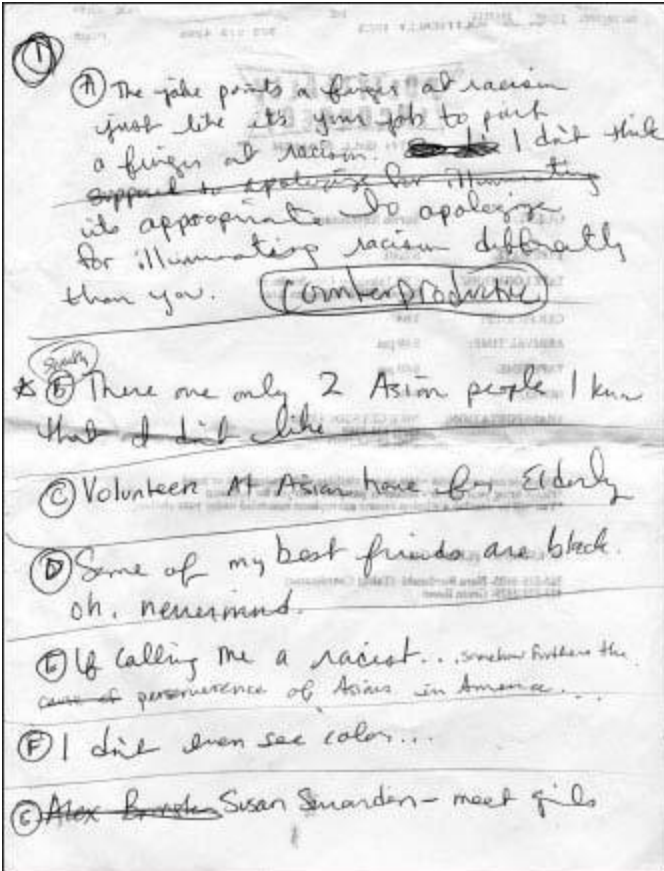 ①
Ⓐ The joke points a finger at racism
just like it's your job to point
a finger at racism. I don't think
supposed to apologize for illuminating
its appropriate to apologize
for illuminating racism differently
than you. Counterproductive
Ⓑ There are only 2 Asian people I know
that I don't like
Ⓒ Volunteer At Asian home for Elderly
Ⓓ Some of my best friends are black.
oh, nevermind.
Ⓔ If calling me a racist... somehow furthers the
cause of perserverence of Asians in America...
Ⓕ I don't even see color...
Ⓖ Alex Susan - meet girls